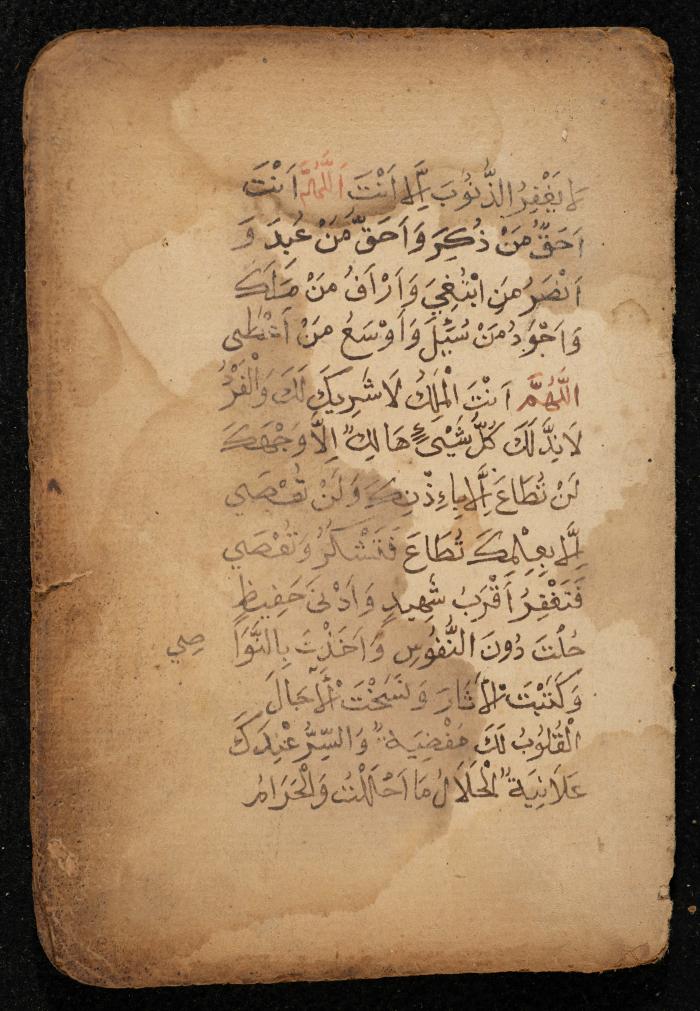 لَا يَغْفِرُ الذُّنُوبَ إِلَّا اَنْتَ اَللَّهُمَّ اَنْتَ
اَحَقُّ مَنْ ذُكِرَ وَاَحَقُّ مَنْ عُبِدَ وَ
اَنْصَرُ مَنِ ابْتُغِيَ وَاَرْاَفُ مَنْ مَلَكَ
وَاَجْوَدُ مَنْ سُئِلَ وَاَوْسَعُ مَنْ اَعْطٰى
اَللّٰهُمَّ اَنْتَ الْمَلِكُ لَا شَرِيكَ لَكَ وَالْفَرْدُ
لَا نِدَّ لَكَ كُلُّ شَيْئٍ هَالِكٌ اِلَّا وَجْهَكَ
لَنْ تُطَاعَ إِلَّا بِاِذْنِكَ وَلَنْ تُعْصٰى
إِلَّا بِعِلْمِكَ تُطَاعَ فَتَشْكُرُ وَتُعْصٰى
فَتَغْفِرُ اَقْرَبُ شَهِيدٍ وَاَدْنَى حَفِيظٍ
حُلْتَ دُونَ النُّفُوسِ وَاَخَذْتَ بِالنَّوَا صِي
وَكَتَبْتَ الْأَثَارَ وَنَسَخْتَ الْأَجَالَ
اَلْقُلُوبُ لَكَ مُفْضِيَةٌ وَالسِّرُّ عِنْدَكَ
عَلَانِيَةٌ الْحَلَالُ مَا اَحْلَلْتَ وَالْحَرَامُ